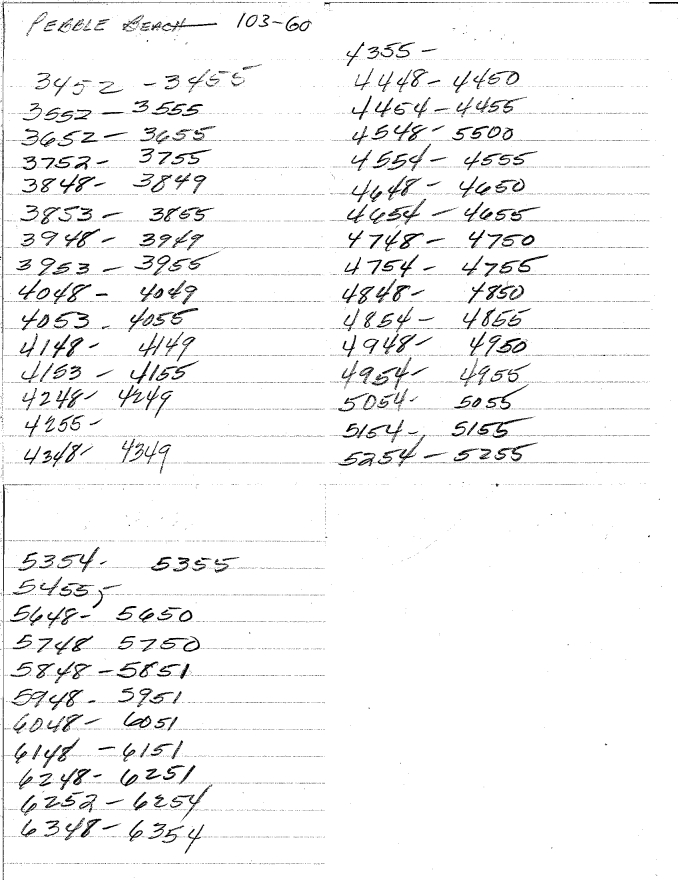 PEBBLE BEACH 103-60
3452 - 3455
3552 - 3555
3652 - 3655
3752 - 3755
3848 - 3849
3853 - 3855
3948 - 3949
3953 - 3955
4048 - 4049
4053 - 4055
4148 - 4149
4153 - 4155
4248 - 4249
4255 -
4348 - 4349
4355 -
4448 - 4450
4454 - 4455
4548 - 5500
4554 - 4555
4648 - 4650
4654 - 4655
4748 - 4750
4754 - 4755
4848 - 4850
4854 - 4855
4948 - 4950
4954 - 4955
5054 - 5055
5154 - 5155
5254 - 5255
5354 - 5355
5455 -
5648 - 5650
5748 5750
5848 - 5851
5948 - 5951
6048 - 6051
6148 - 6151
6248 - 6251
6252 - 6254
6348 - 6354